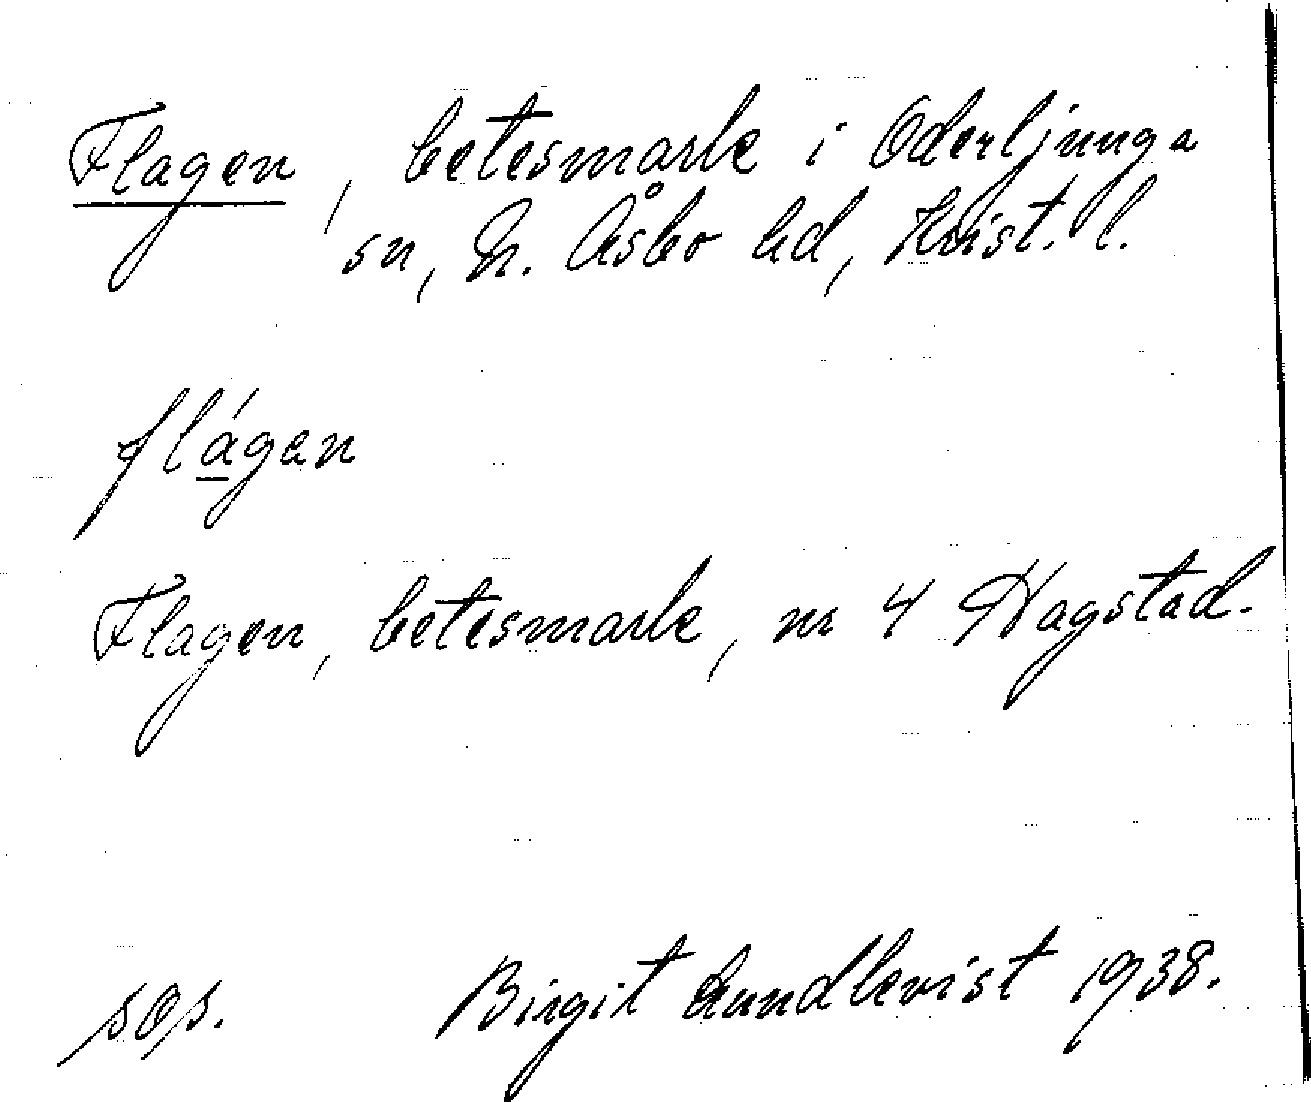 Flagen, betesmark i Oderljunga
sn, N. Åsbo hd, Krist. l.
flágen
Flagen, betesmark, nr 4 Hagstad.
sOs. Birgit Lundkvist 1938.